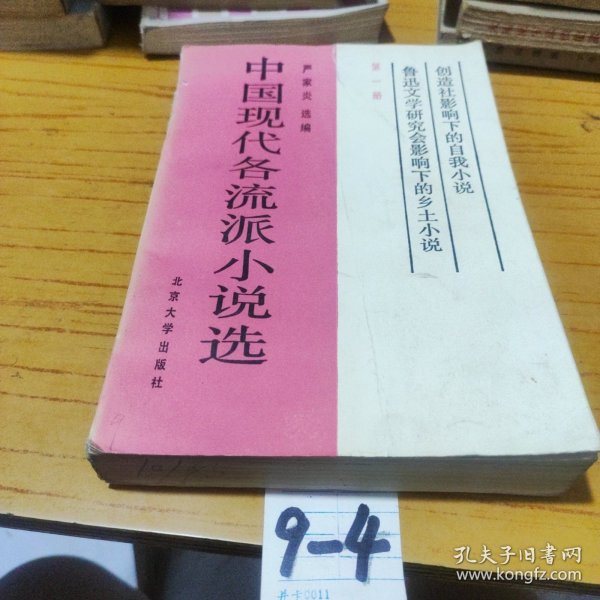 创造社影响下的自我小说
鲁迅文学研究会影响下的乡土小说
第一册
严家炎 选编
中国现代各流派小说选
北京大学出版社
9-4
孔夫子旧书网
www.kongfz.com